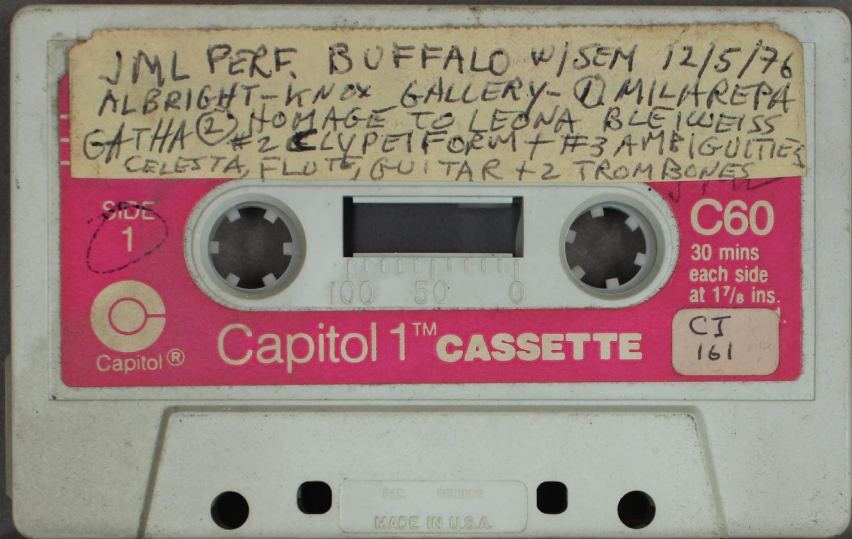 JML PERF. BUFFALO W/SEM 12/5/76
ALBRIGHT-KNOX GALLERY- ① MILAREPA
GATHA ② HOMAGE TO LEONA BLEIWEISS
#2 CLYPEIFORM + #3 AMBIGUITIES
CELESTA, FLUTE, GUITAR + 2 TROMBONES
JML
SIDE
1
C60
30 mins
each side
at 1⅞ ins.
100 50 0
Capitol®
Capitol 1™ CASSETTE
CI
161
MADE IN U.S.A.